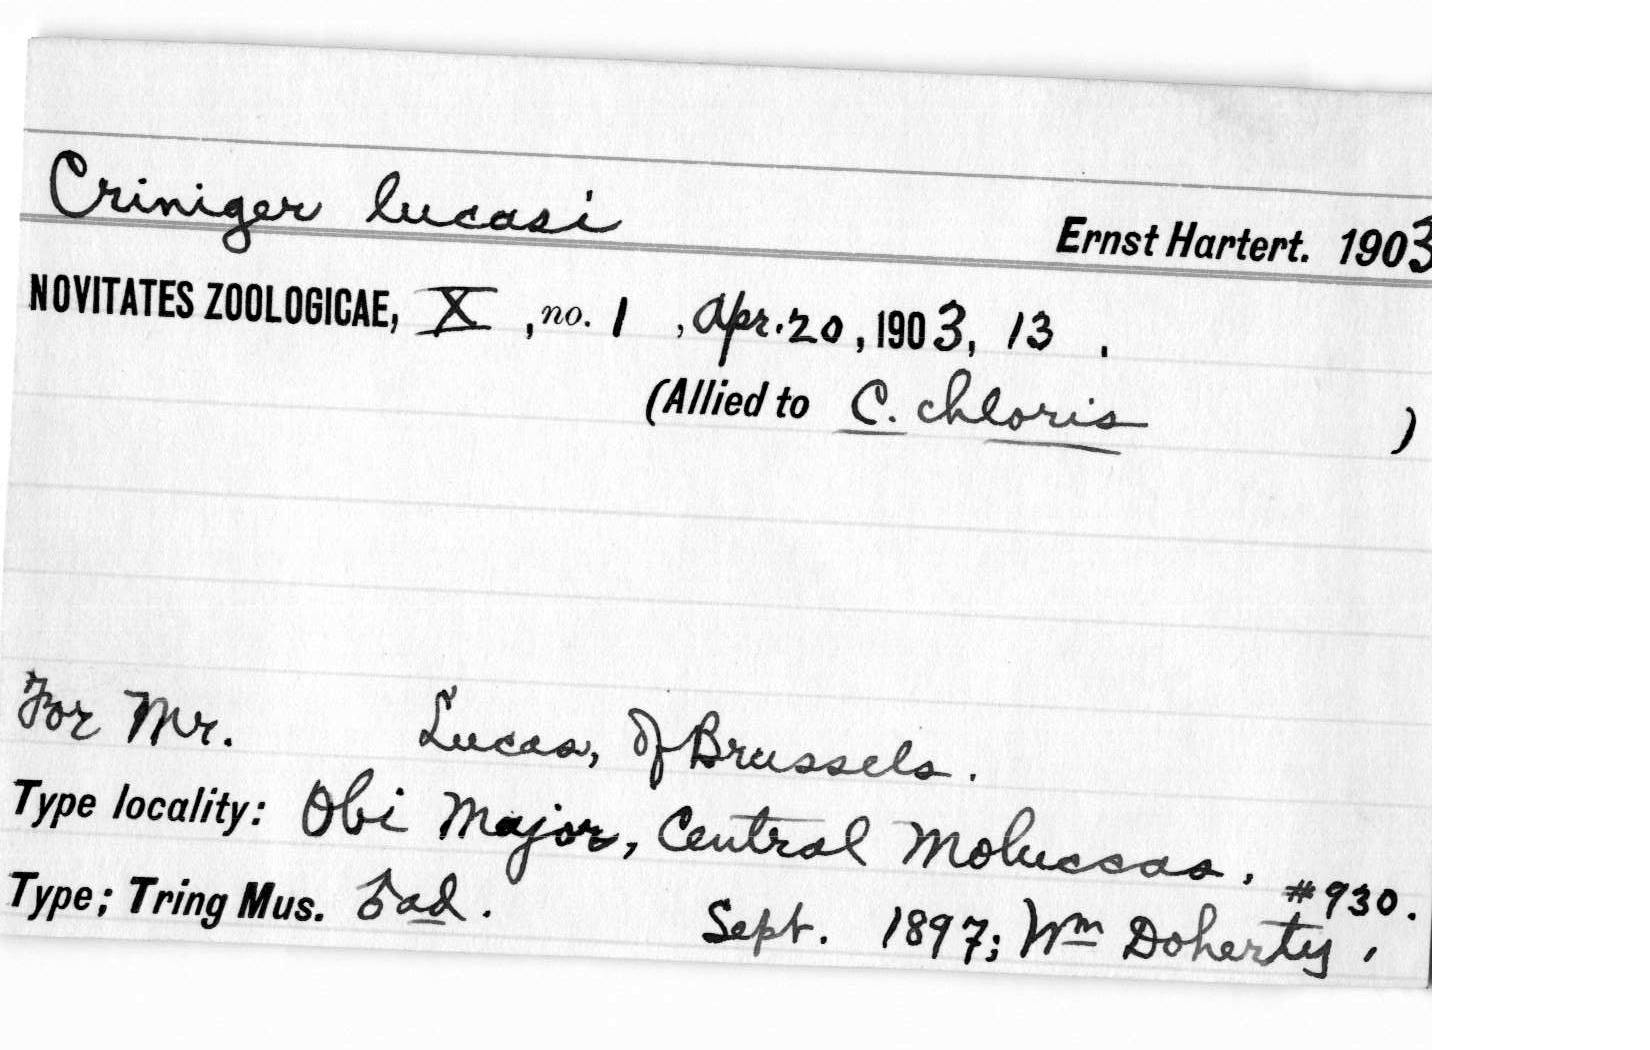 Criniger lucasi Ernst Hartert. 1903
NOVITATES ZOOLOGICAE, X, no. 1, Apr. 20, 1903, 13.
(Allied to C. chloris )
For Mr. Lucas, of Brussels.
Type locality: Obi Major, Central Moluccas. #930.
Type; Tring Mus. ♂ ad. Sept. 1897; Wm Doherty.